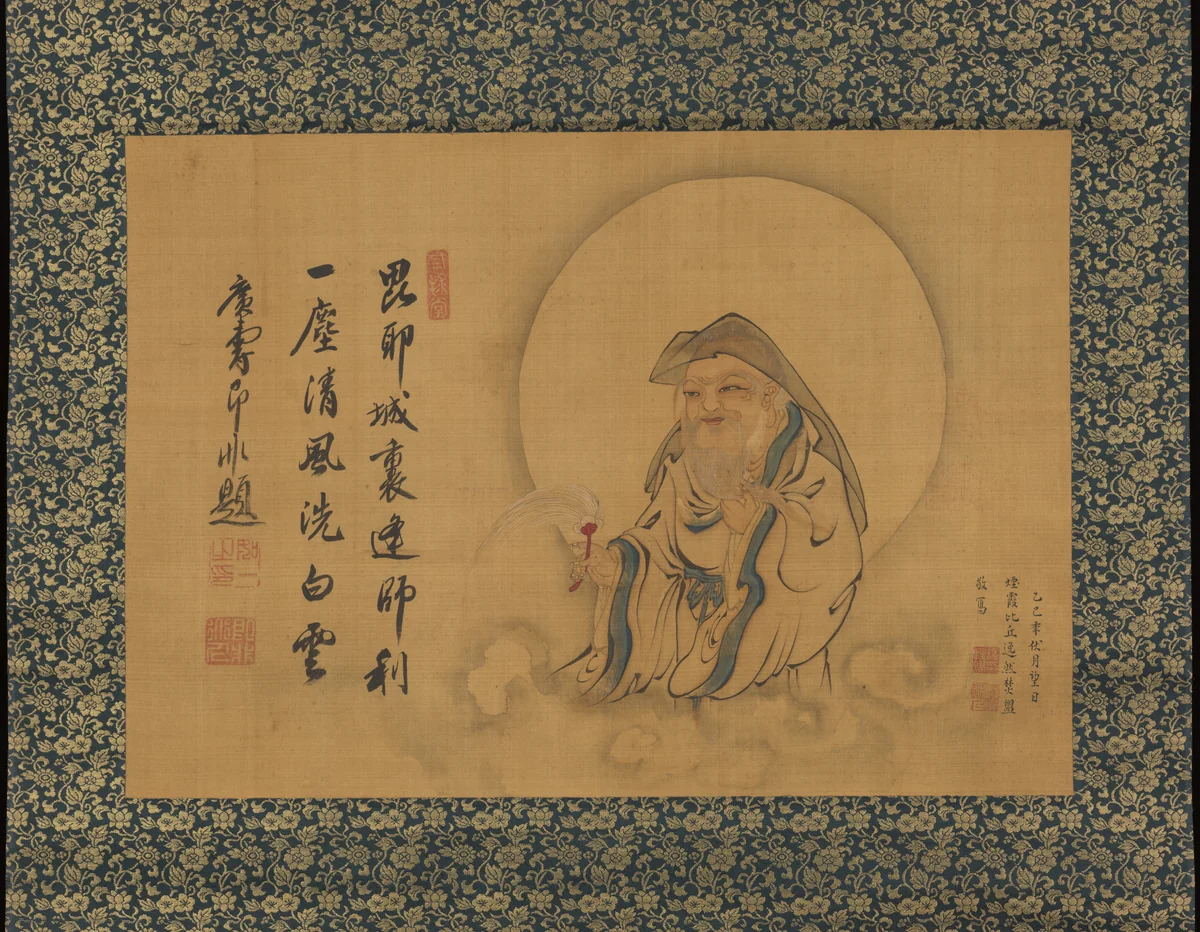 乙巳年伏月望日
煙霞比丘逸然焚盥
敬寫
毘耶城裏逢師利
一麈清風洗白雲
廣壽即非題
如一之印